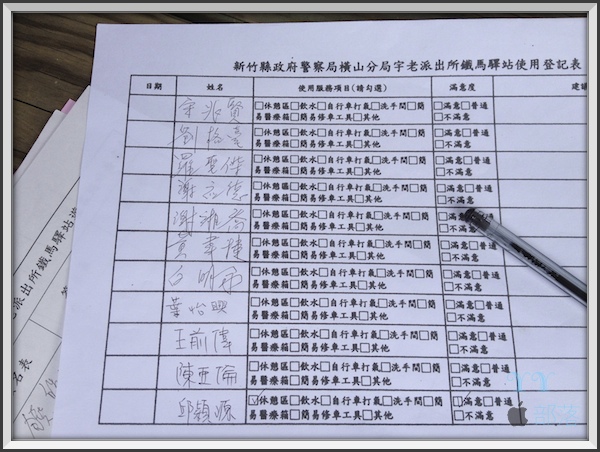 新竹縣政府警察局橫山分局宇老派出所鐵馬驛站使用登記表
日期 姓名 使用服務項目(請勾選) 滿意度 建議
宋兆賢 □休憩區□飲水□自行車打氣□洗手間□簡 □滿意□普通
易醫療箱□簡易修車工具□其他 □不滿意
□休憩區□飲水□自行車打氣□洗手間□簡 □滿意□普通
易醫療箱□簡易修車工具□其他 □不滿意
羅聖傑 □休憩區□飲水□自行車打氣□洗手間□簡 □滿意□普通
易醫療箱□簡易修車工具□其他 □不滿意
謝志德 □休憩區□飲水□自行車打氣□洗手間□簡 □滿意□普通
易醫療箱□簡易修車工具□其他 □不滿意
謝 □休憩區□飲水□自行車打氣□洗手間□簡 滿意□普通
易醫療箱□簡易修車工具□其他 □不滿意
黃韋捷 □休憩區□飲水□自行車打氣□洗手間□簡 □滿意□普通
易醫療箱□簡易修車工具□其他 □不滿意
白明 □休憩區□飲水□自行車打氣□洗手間□簡 □滿意□普通
易醫療箱□簡易修車工具□其他 □不滿意
葉怡興 □休憩區□飲水□自行車打氣□洗手間□簡 □滿意□普通
易醫療箱□簡易修車工具□其他 □不滿意
王前偉 □休憩區□飲水□自行車打氣□洗手間□簡 □滿意□普通
易醫療箱□簡易修車工具□其他 □不滿意
陳亞倫 □休憩區□飲水□自行車打氣□洗手間□簡 □滿意□普通
易醫療箱□簡易修車工具□其他 □不滿意
邱穎源 ☑休憩區□飲水□自行車打氣□洗手間□簡 ☑滿意□普通
易醫療箱□簡易修車工具□其他 □不滿意
派出所鐵馬驛站
名表
部落